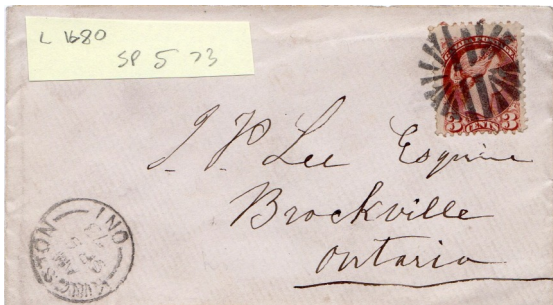 L 1680
SP 5 73
3 CENTS 3
J. P. Lee Esquire
Brockville
Ontario
KINGSTON
ONT
AM
SP 5
73